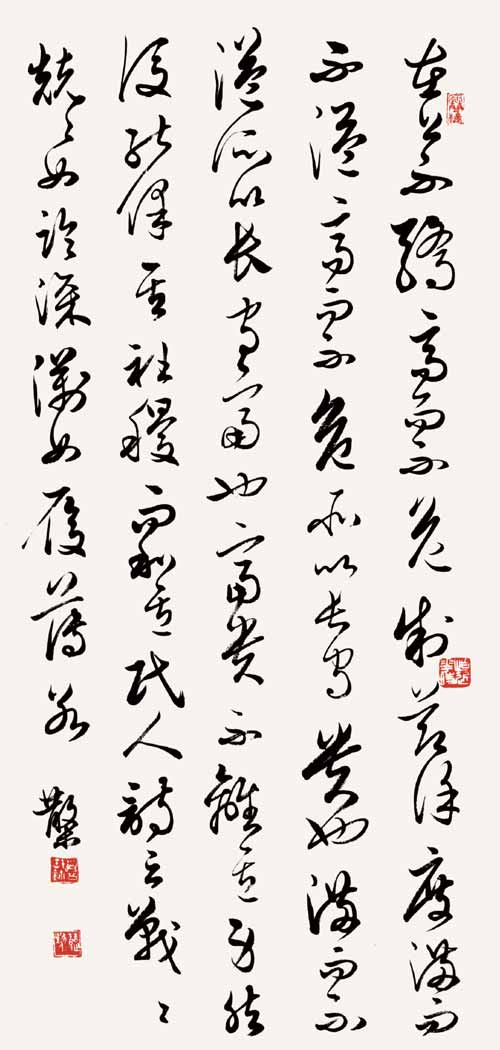 在上不驕高而不危制節謹度滿而
不溢高而不危所以長守貴也滿而不
溢所以長守富也富貴不離其身然
後能保其社稷而和其民人詩云戰〻
兢〻如臨深淵如履薄冰